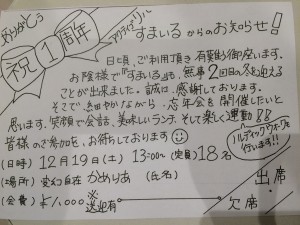 ありがとう
祝1周年
アクティブ・リハ
すまいる からのお知らせ!
日頃、ご利用頂き有難う御座います。
お陰様で『すまいる』も、無事2回目の冬を迎える
ことが出来ました。誠に感謝しております。
そこで、細やかながら、忘年会を開催したいと
思います。笑顔で会話、美味しいランチ、そして楽しく運動!!
皆様のご参加を、お待ちしております
ノルディックウォークを
行います!!
(日時) 12月19日(土) 13:00〜 (定員)18名
(場所) 変幻自在 かめりあ (氏名)
(会費) ¥1,000 ※送迎有
出席
欠席